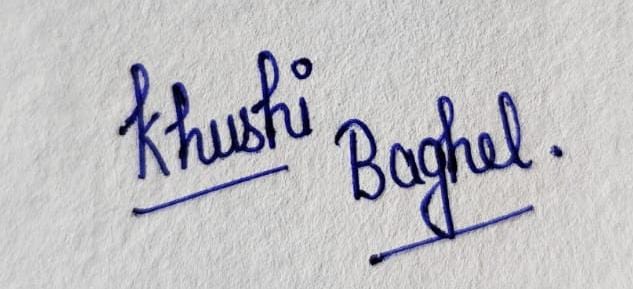 Khushi Baghel.